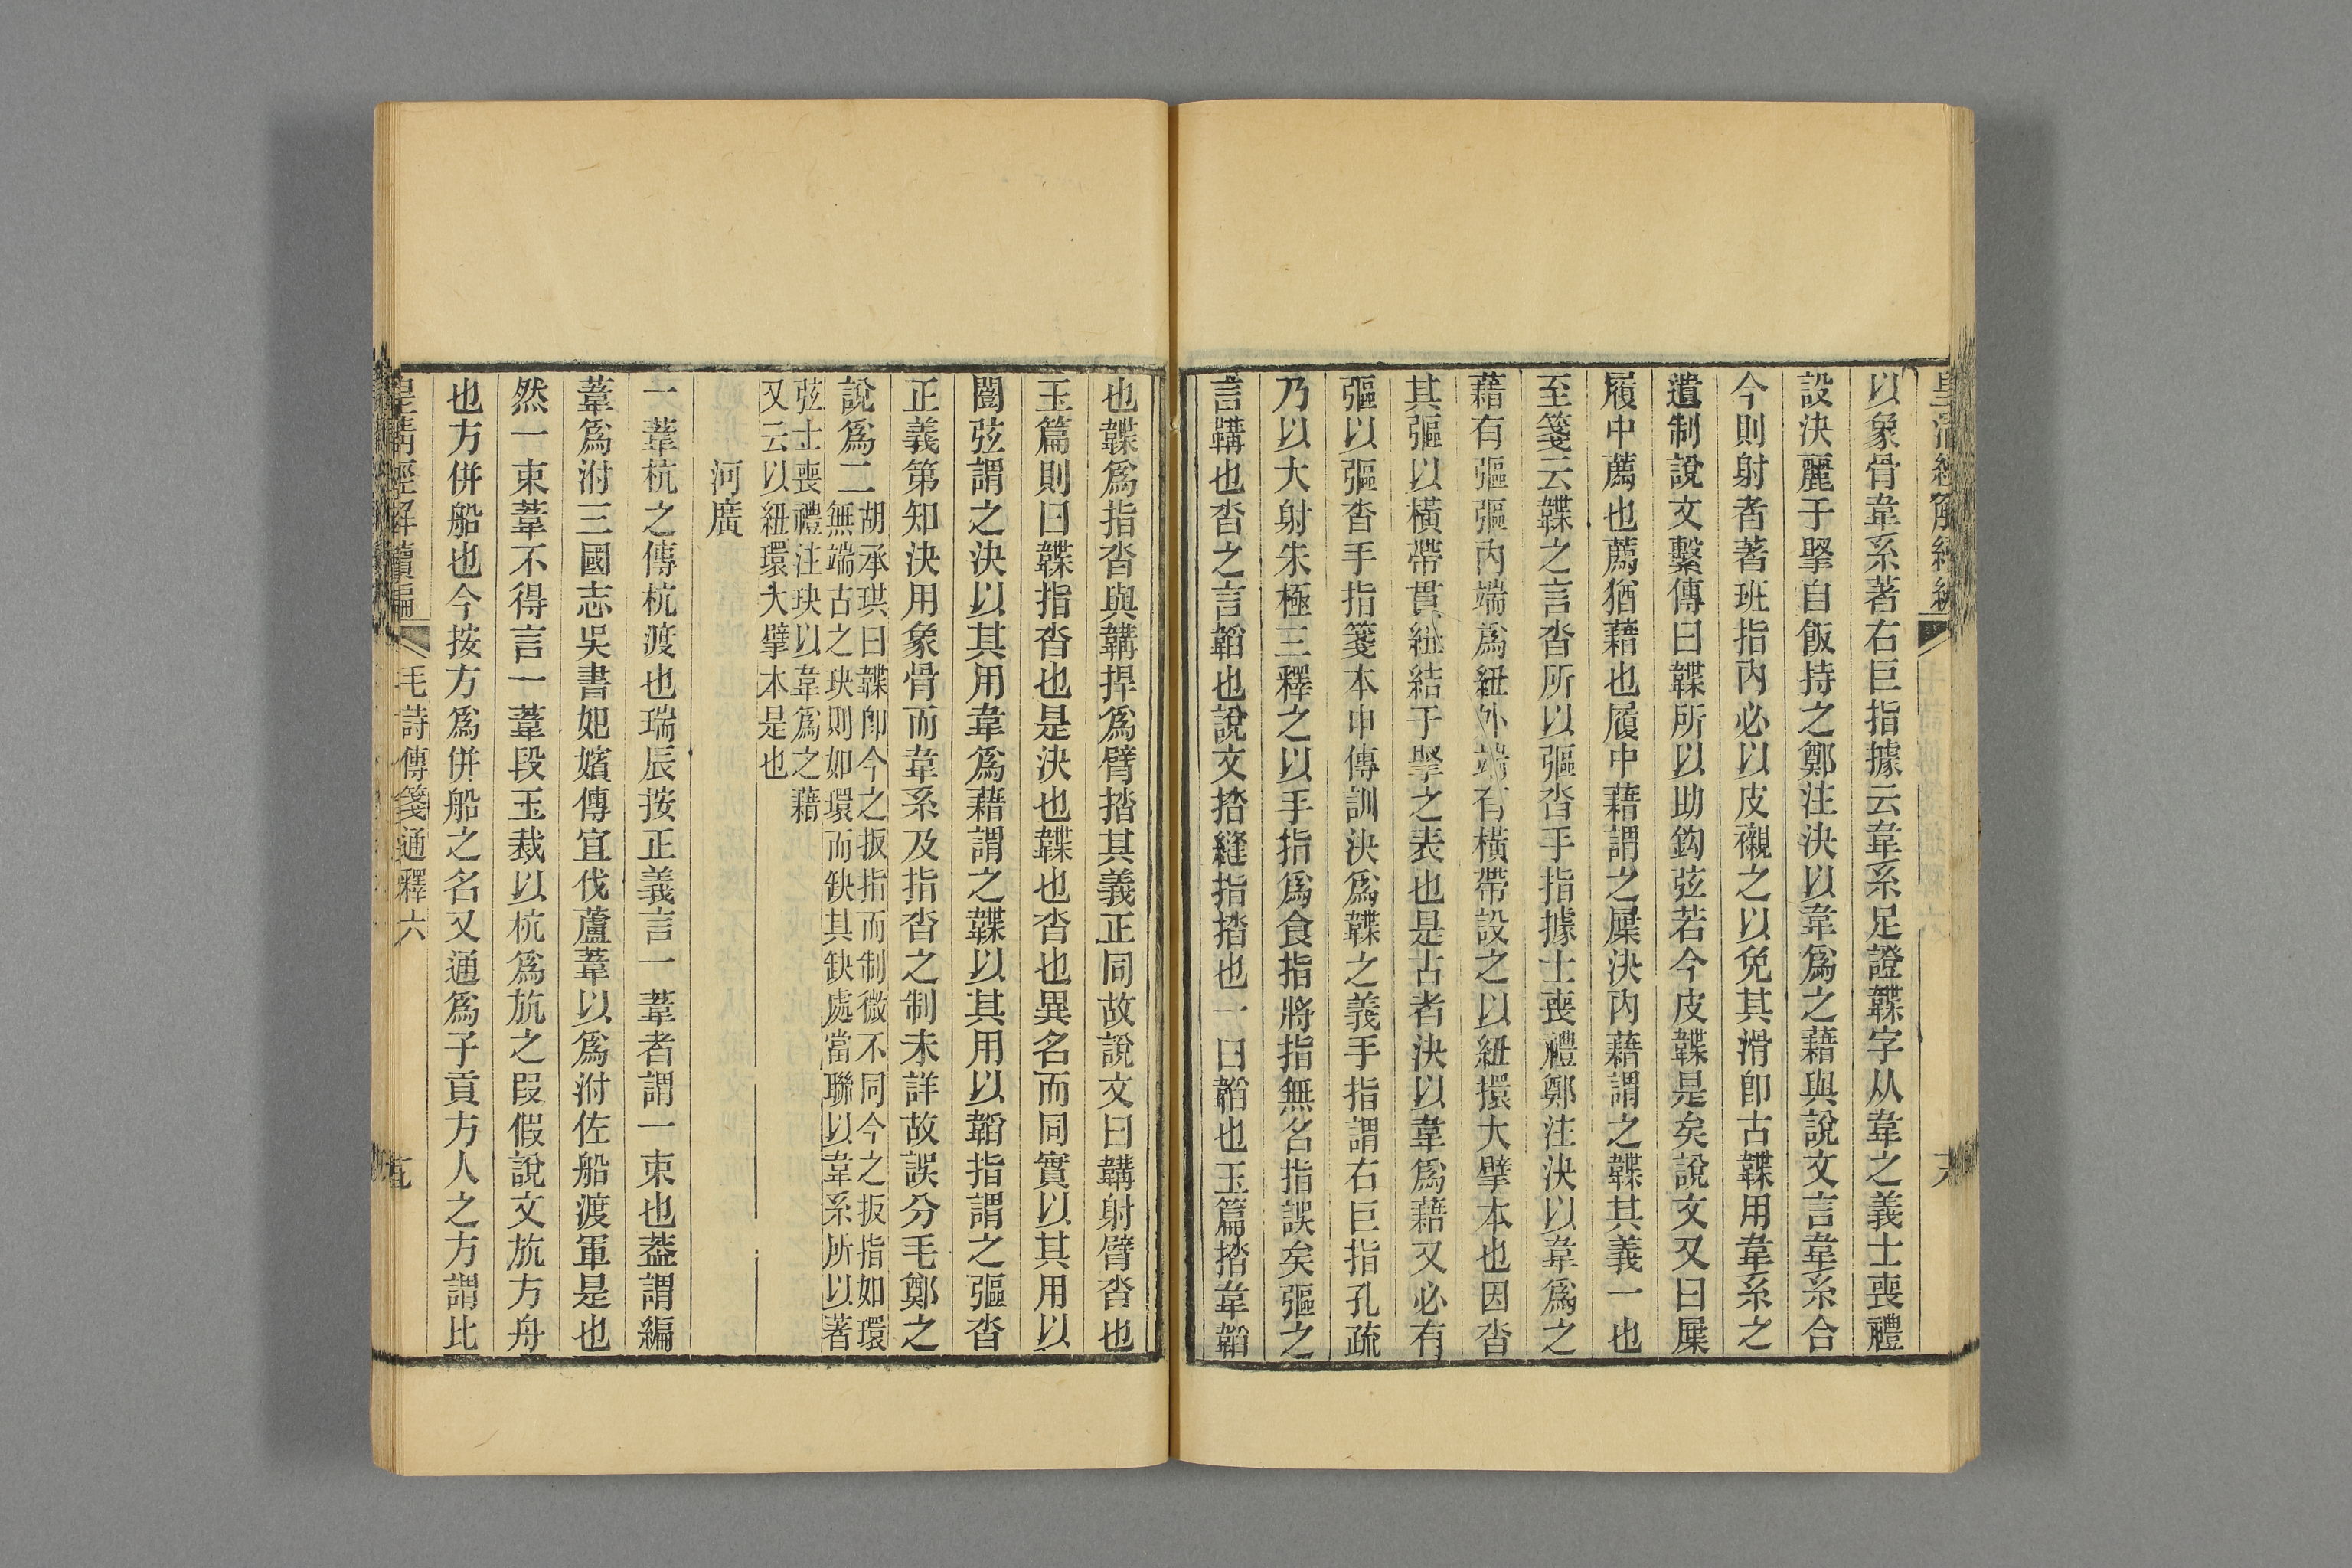 皇清經解續編
以象骨韋系著右巨指據云韋系足證韘字从韋之義士喪禮
設決麗于掔自飯持之鄭注決以韋爲之藉與說文言韋系合
今則射者著班指內必以皮襯之以免其滑卽古韘用韋系之
遺制說文繫傳曰韘所以助鈎弦若今皮韘是矣說文又曰屟
履中薦也薦猶藉也履中藉謂之屟決內藉謂之韘其義一也
至箋云韘之言沓所以彄沓手指據士喪禮鄭注決以韋爲之
藉有彄彄內端爲紐外端有橫帶設之以紐擐大擘本也因沓
其彄以橫帶貫紐結于掔之表也是古者決以韋爲藉又必有
彄以彄沓手指箋本申傳訓決爲韘之義手指謂右巨指孔疏
乃以大射朱極三釋之以手指爲食指將指無名指誤矣彄之
言韝也沓之言韜也說文㧺縫指揩也一曰韜也玉篇揩韋韜
也韘爲指沓與韝捍爲臂揩其義正同故說文曰韝射臂沓也
玉篇則曰韘指沓也是決也韘也沓也異名而同實以其用以
闓弦謂之決以其用韋爲藉謂之韘以其用以韜指謂之彄沓
正義第知決用象骨而韋系及指沓之制未詳故誤分毛鄭之
說爲二胡承珙曰韘卽今之扳指而制微不同今之扳指如環
無端古之玦則如環而缺其缺處當聯以韋系所以著
弦士喪禮注玦以韋爲之藉
又云以紐環大擘本是也
河廣
一葦杭之傳杭渡也瑞辰按正義言一葦者謂一束也葢謂編
葦爲泭三國志吳書妃嬪傳宜伐蘆葦以爲泭佐船渡軍是也
然一束葦不得言一葦段玉裁以杭爲斻之叚假說文斻方舟
也方併船也今按方爲併船之名又通爲子貢方人之方謂比
皇清經解續編 毛詩傳箋通釋六